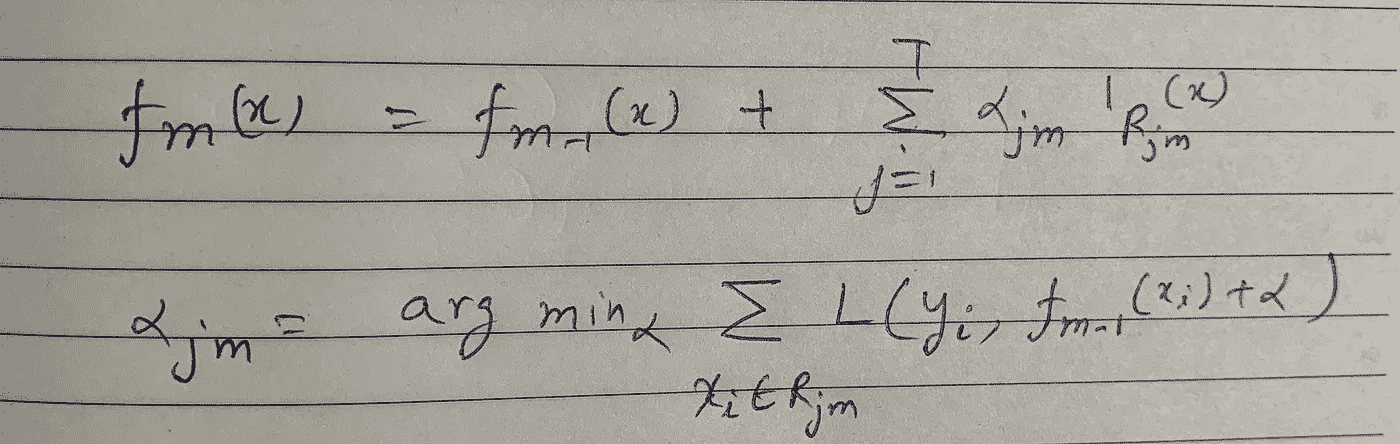 f_m(x) = f_{m-1}(x) + \sum_{j=1}^{T} α_{jm} 1_{R_{jm}}(x)
α_{jm} = arg min_α \sum_{x_i ∈ R_{jm}} L(y_i, f_{m-1}(x_i) + α)